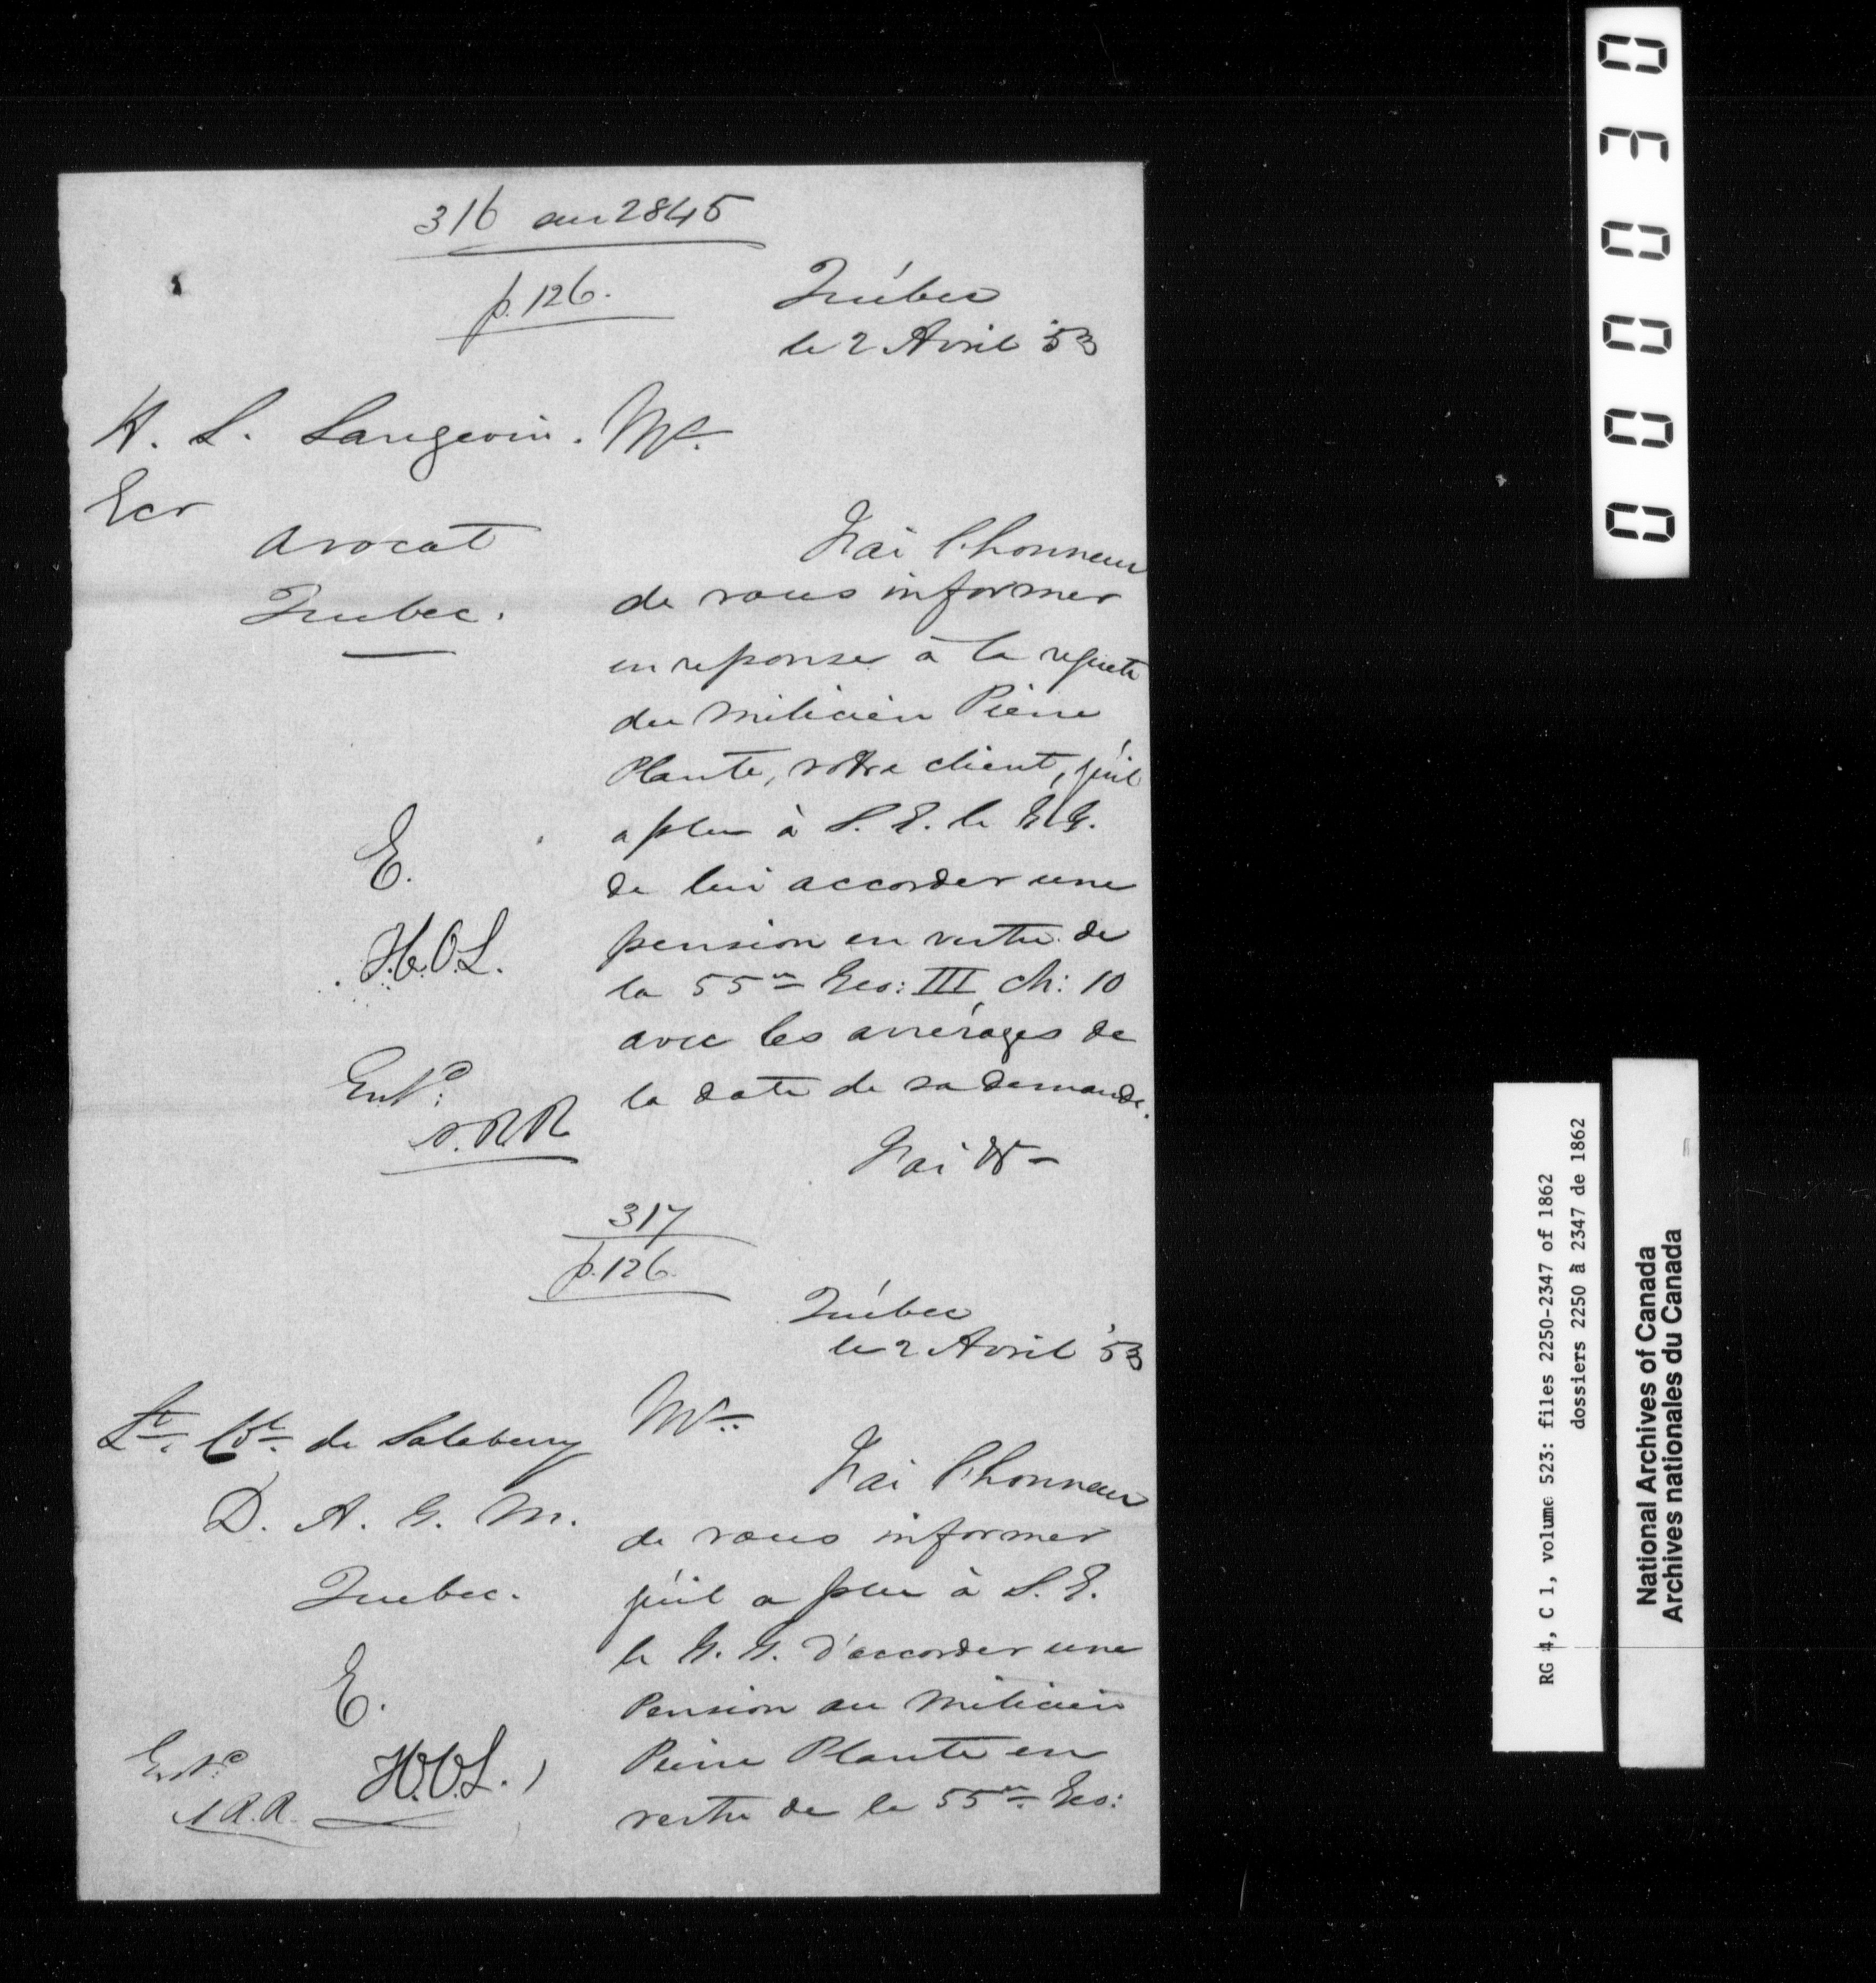 316 au 2845
p. 126.
Québec
le 2 Avril '53
H. L. Langevin.
Ecr
avocat
Quebec.
Mr.
J'ai l'honneur
de vous informer
en reponse à la requete
du Milicien Pierre
Plante, votre client, qu'il
a plu à S. E. le G. G.
de lui accorder une
pension en vertu de
la 55me Geo: III ch: 10
avec les arrérages de
la date de sa demande.
J'ai &c -
E.
H.O.L.
Entd:
R R
317
p. 126.
Québec
le 2 Avril '53
Lt. Col. de Salaberry
D. A. G. M.
Quebec.
Mr.
J'ai l'honneur
de vous informer
qu'il a plu à S. E.
le G. G. d'accorder une
Pension au Milicien
Pierre Plante en
vertu de la 55me Geo:
E.
H.O.L.
Entd:
R. R.
0 0 0 0 3 0
RG 4, C 1, volume 523: files 2250-2347 of 1862
dossiers 2250 à 2347 de 1862
National Archives of Canada
Archives nationales du Canada